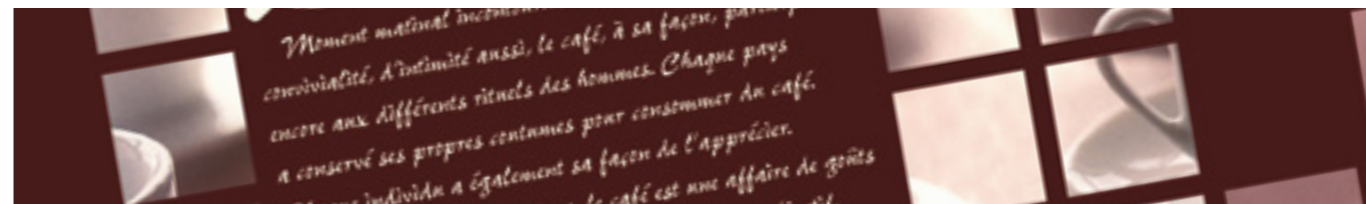 Moment matinal
convivialité, d'intimité aussi, le café, à sa façon,
encore aux différents rituels des hommes. Chaque pays
a conservé ses propres coutumes pour consommer du café.
individu a également sa façon de l'apprécier.
le café est une affaire de goûts